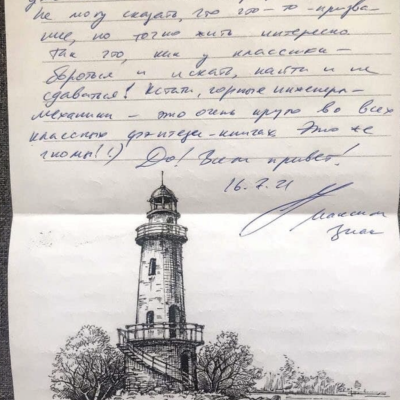 Не могу сказать, что это-то - призва-
ние, но точно жить интересно.
Так что, как у классика -
бороться и искать, найти и не
сдаваться! Кстати, горные инженера-
механики - это очень круто во всех
классных фэнтези-книгах. Это же
гномы!!:) До! Всем привет!
16.7.21
Максим